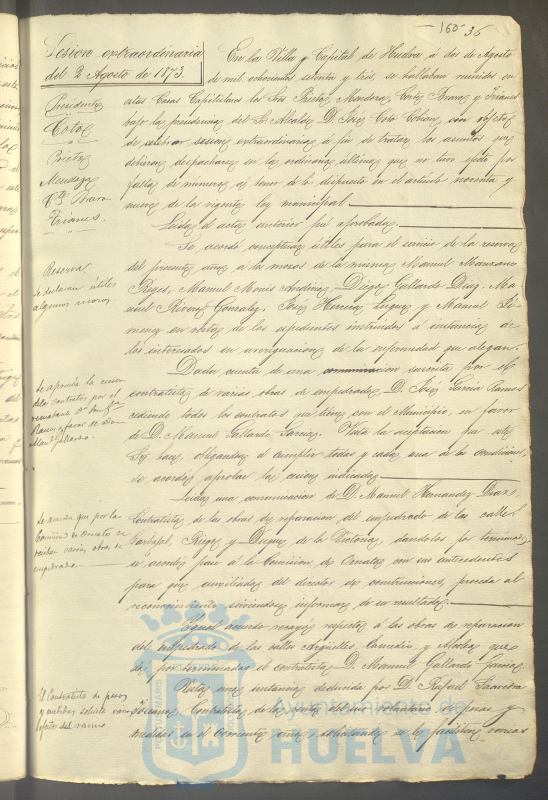 160 36
Sesion extraordinaria
del 2 Agosto de 1873.
Presidente
Coto
Prieto
Mendoza
Cts Bravo
Trianes.
En la Villa y Capital de Huelva á dos de Agosto
de mil ochocientos setenta y tres, se hallaban reunidos en
estas Casas Capitulares los Sres Prieto, Mendoza, Cortés Bravo y Trianes
bajo la presidencia del Sr Alcalde D. José Coto Cobian, con objeto
de celebrar sesion extraordinaria á fin de tratar los asuntos que
debieron despacharse en la ordinaria última que no tuvo efecto por
falta de número, al tenor de lo dispuesto en el artículo noventa y
nueve de la vigente ley municipal.
Leida el acta anterior fué aprobada.
Reserva.
Se declaran útiles
algunos mozos
Se acordó conceptuar útiles para el servicio de la reserva
del presente año á los mozos de la misma Manuel Manzano
Reyes, Manuel Monis Andivia, Diego Gallardo Diaz, Ma
nuel Rivera Gonzalez, José Herrera Luque y Manuel Ji
menez en vista de los espedientes instruidos á instancia de
los interesados en averiguacion de la enfermedad que alegan.
Se aprueba la cesion
de los contratos por el
rematante Dn José Ga
Ramos a favor de Dn
Manl Gallardo.
Dada cuenta de una comunicacion suscrita por el
contratista de varias obras de empedrado, D. José Garcia Ramos
cediendo todos los contratos que tiene con el Municipio, en favor
de D. Manuel Gallardo Garcia. Vista la aceptacion que este
Sr hace, obligandose á cumplir todas y cada una de las condiciones,
se acordó aprobar la cesion indicada.
Se acuerda que por la
Comision de Ornato se
reciban varias obras de
empedrado.
Leida una comunicacion de D. Manuel Hernandez
Contratista de las obras de reparacion del empedrado de las calles
Garbajal, Rieges y Duque de la Victoria, dandolas por terminadas
se acordó pase á la Comision de Ornato con sus antecedentes
para que auxiliados del director de construcciones, proceda al
reconocimiento, sirviendose informar de su resultado.
Igual acuerdo recayó respecto á las obras de reparacion
del empedrado de las calles Argüelles, y que
da por terminadas el contratista D. Manuel Gallardo Garcia.
El Contratista de pesas
y medidas solicita varios
efectos del ramo
Vista una instancia deducida por D. Rafael
Contratista de la renta del uso voluntario de pesas y
medidas en el corriente año, solicitando se le faciliten varias
PORTUS MARIS
Ayuntamiento de
HUELVA